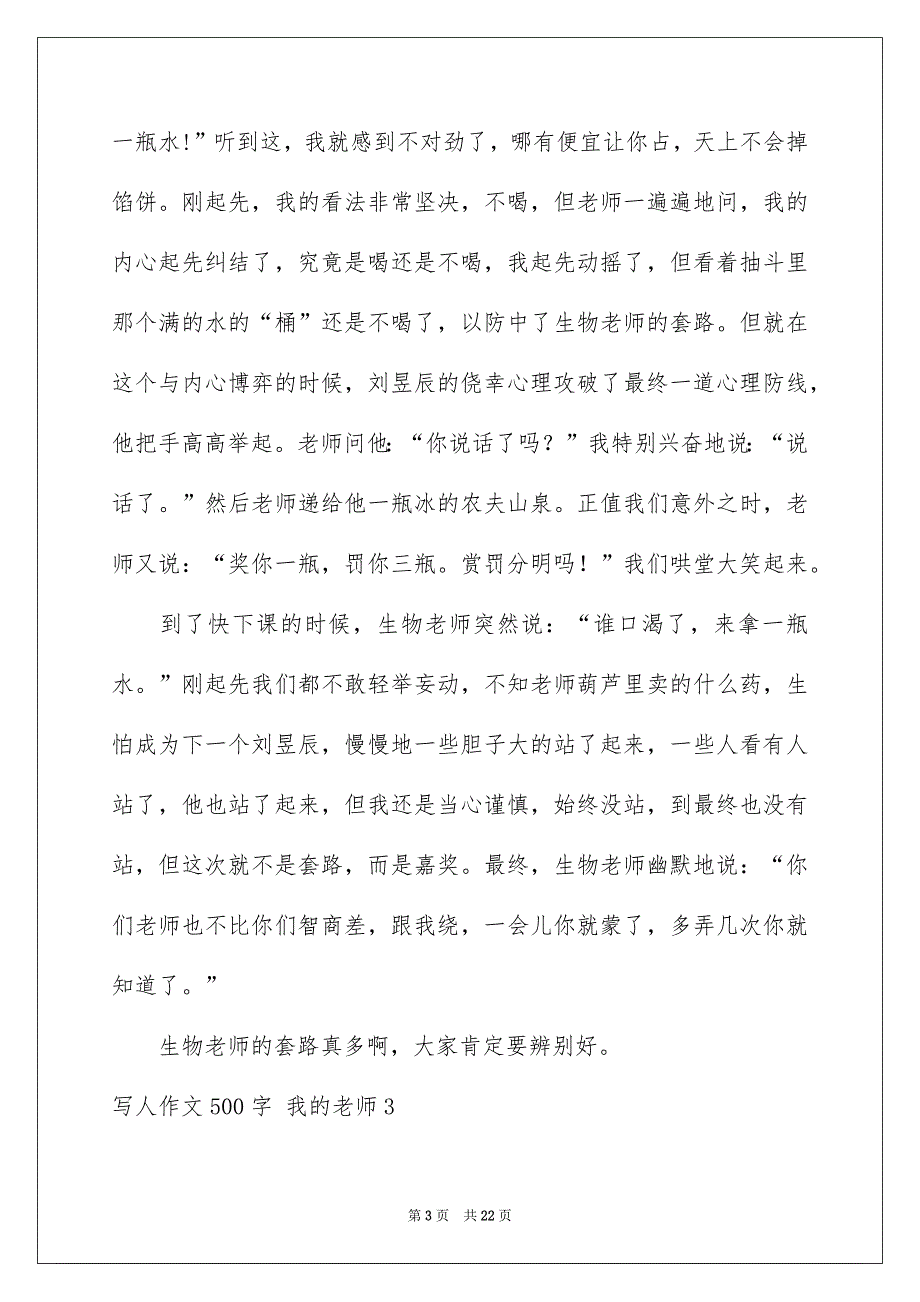 一瓶水!”听到这，我就感到不对劲了，哪有便宜让你占，天上不会掉
馅饼。刚起先，我的看法非常坚决，不喝，但老师一遍遍地问，我的
内心起先纠结了，究竟是喝还是不喝，我起先动摇了，但看着抽斗里
那个满的水的“桶”还是不喝了，以防中了生物老师的套路。但就在
这个与内心博弈的时候，刘昱辰的侥幸心理攻破了最终一道心理防线，
他把手高高举起。老师问他：“你说话了吗？”我特别兴奋地说：“说
话了。”然后老师递给他一瓶冰的农夫山泉。正值我们意外之时，老
师又说：“奖你一瓶，罚你三瓶。赏罚分明吗！”我们哄堂大笑起来。
到了快下课的时候，生物老师突然说：“谁口渴了，来拿一瓶
水。”刚起先我们都不敢轻举妄动，不知老师葫芦里卖的什么药，生
怕成为下一个刘昱辰，慢慢地一些胆子大的站了起来，一些人看有人
站了，他也站了起来，但我还是当心谨慎，始终没站，到最终也没有
站，但这次就不是套路，而是嘉奖。最终，生物老师幽默地说：“你
们老师也不比你们智商差，跟我绕，一会儿你就蒙了，多弄几次你就
知道了。”
生物老师的套路真多啊，大家肯定要辨别好。
写人作文 500 字 我的老师 3
第 3 页 共 22 页